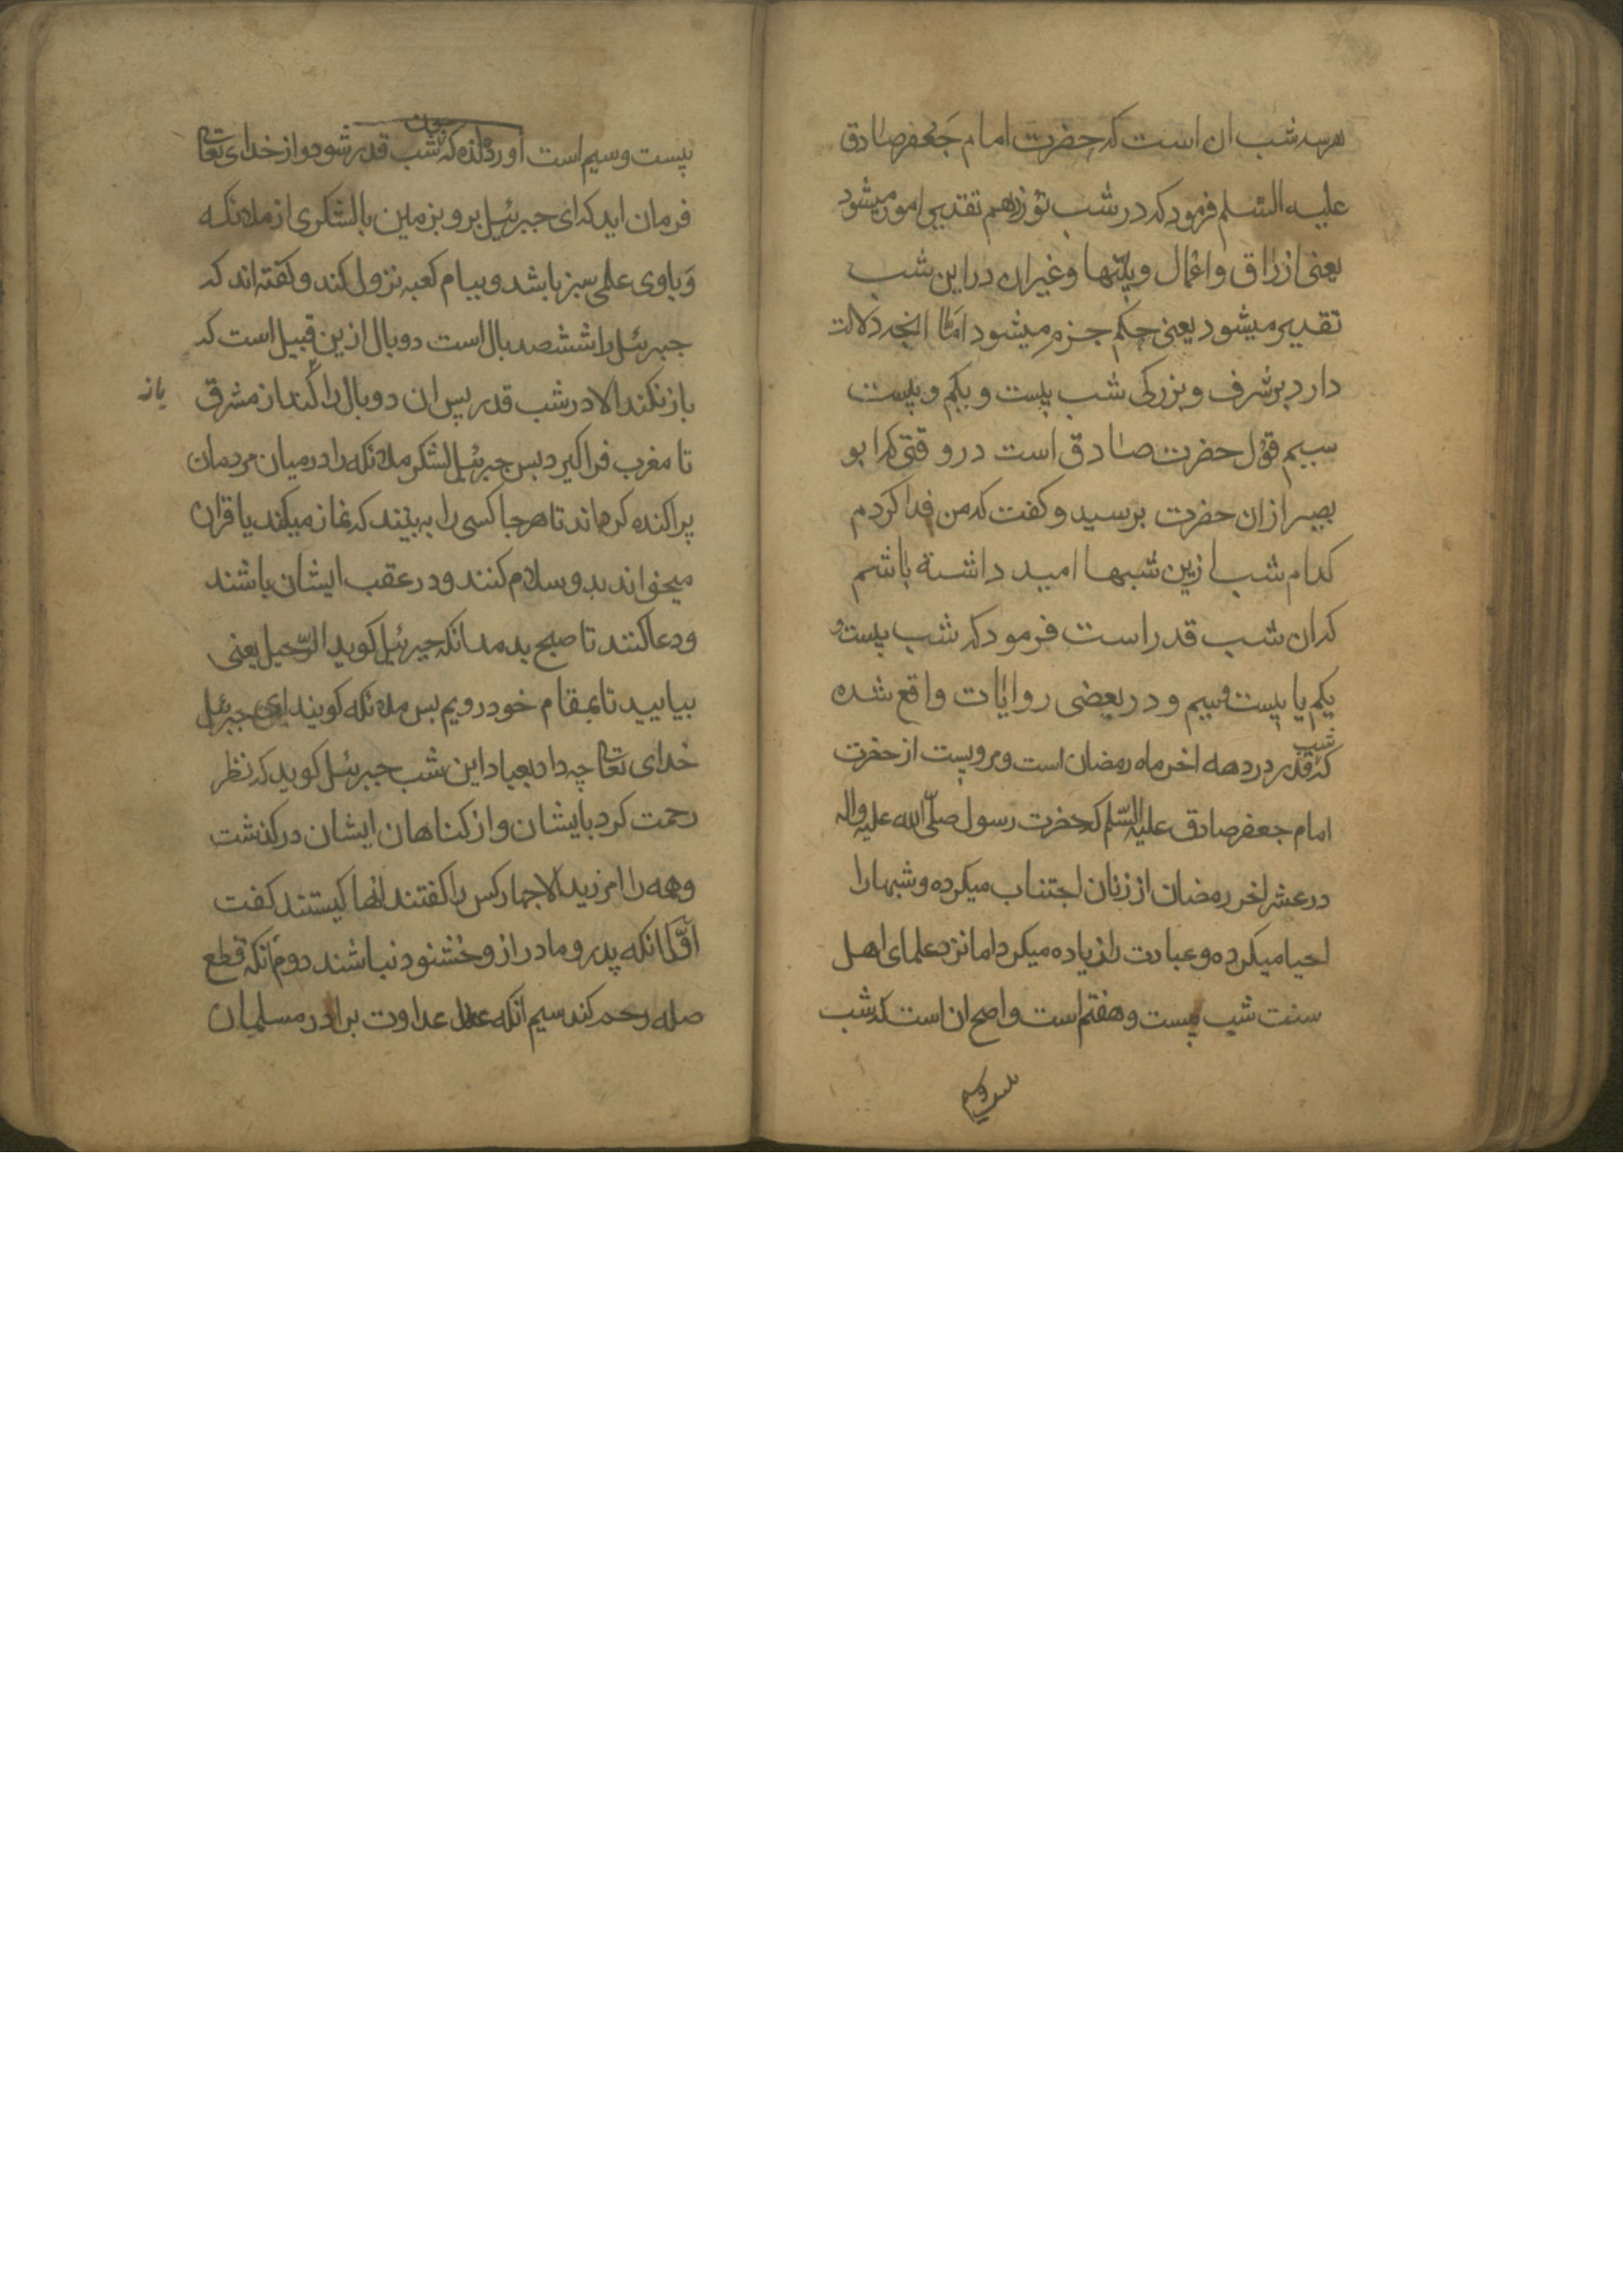 هرسه شب ان است که حضرت امام جَعْفر صادق
علیه السّلم فرمود که در شب نوزدهم تقدیر امور میشود
یعنی ارزاق و اعمال و بلیّها و غیران در این شب
تقدیر میشود یعنی حکم جزم میشود امّا انچه دلالت
دارد برشرف و بزرکی شب بیست و یکم و بیست
سیم قول حضرت صادق است در وقتی که ابو
بصیر از ان حضرت برسید و کفت که من فدا کردم
کدام شب ازین شبها امید داشته باشم
که ان شب قدر است فرمود که شب بیست و
یکم یا بیست و سیم و در بعضی روایات واقع شده
که شب قدر در دهه اخر ماه رمضان است و مرویست از حضرت
امام جعفر صادق علیه السّلم که حضرت رسول صلّی الله علیه واله
در عشر اخر رمضان از زنان اجتناب میکرده و شبها را
احیا میکرده و عبادت را زیاده میکرد اما نزد علمای اهل
سنت شب بیست و هفتم است و اصح ان است که شب
بیست وسیم
بیست و سیم است اورده اند که چون شب قدر شود و از خدای تعالی
فرمان اید که ای جبرئیل برو بزمین با لشکری از ملائکه
وَ باوی علمی سبز باشد و ببام کعبه نزول کند و کفته اند که
جبرئیل را ششصد بال است دو بال ازین قبیل است که
باز نکند الا در شب قدر پس ان دو بال را کند از مشرق
باز
تا مغرب فراکیرد بس جبرئیل لشکر ملائکه را در میان مردمان
پراکنده کرداند تا هرجا کسی را به بینند که نماز میکند یا قران
میخواند بدو سلام کنند و در عقب ایشان باشند
و دعا کنند تا صبح بدمد انکه جبرئیل کوید الرّحیل یعنی
بیایید تا بمقام خود رویم بس ملائکه کویند ای جبرئیل
خدای تعالی چه داد بعباد این شب جبرئیل کوید که نظر
رحمت کرد بایشان و از کناهان ایشان درکذشت
وهمه را امرزید الا چهار کس را کفتند انها کیستند کفت
اوّل انکه پدر و مادر از و خشنود نباشند دوم انکه قطع
صله رحم کند سیم انکه عداوت برادر مسلمان